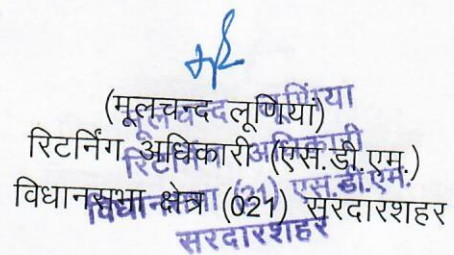 (मूलचन्द लूणियां)
रिटर्निंग अधिकारी (एस.डी.एम.)
विधानसभा क्षेत्र (021) सरदारशहर
मूलचन्द लूणिंया
रिटर्निंग अधिकारी
विधानसभा (21) एस.डी.एम.
सरदारशहर